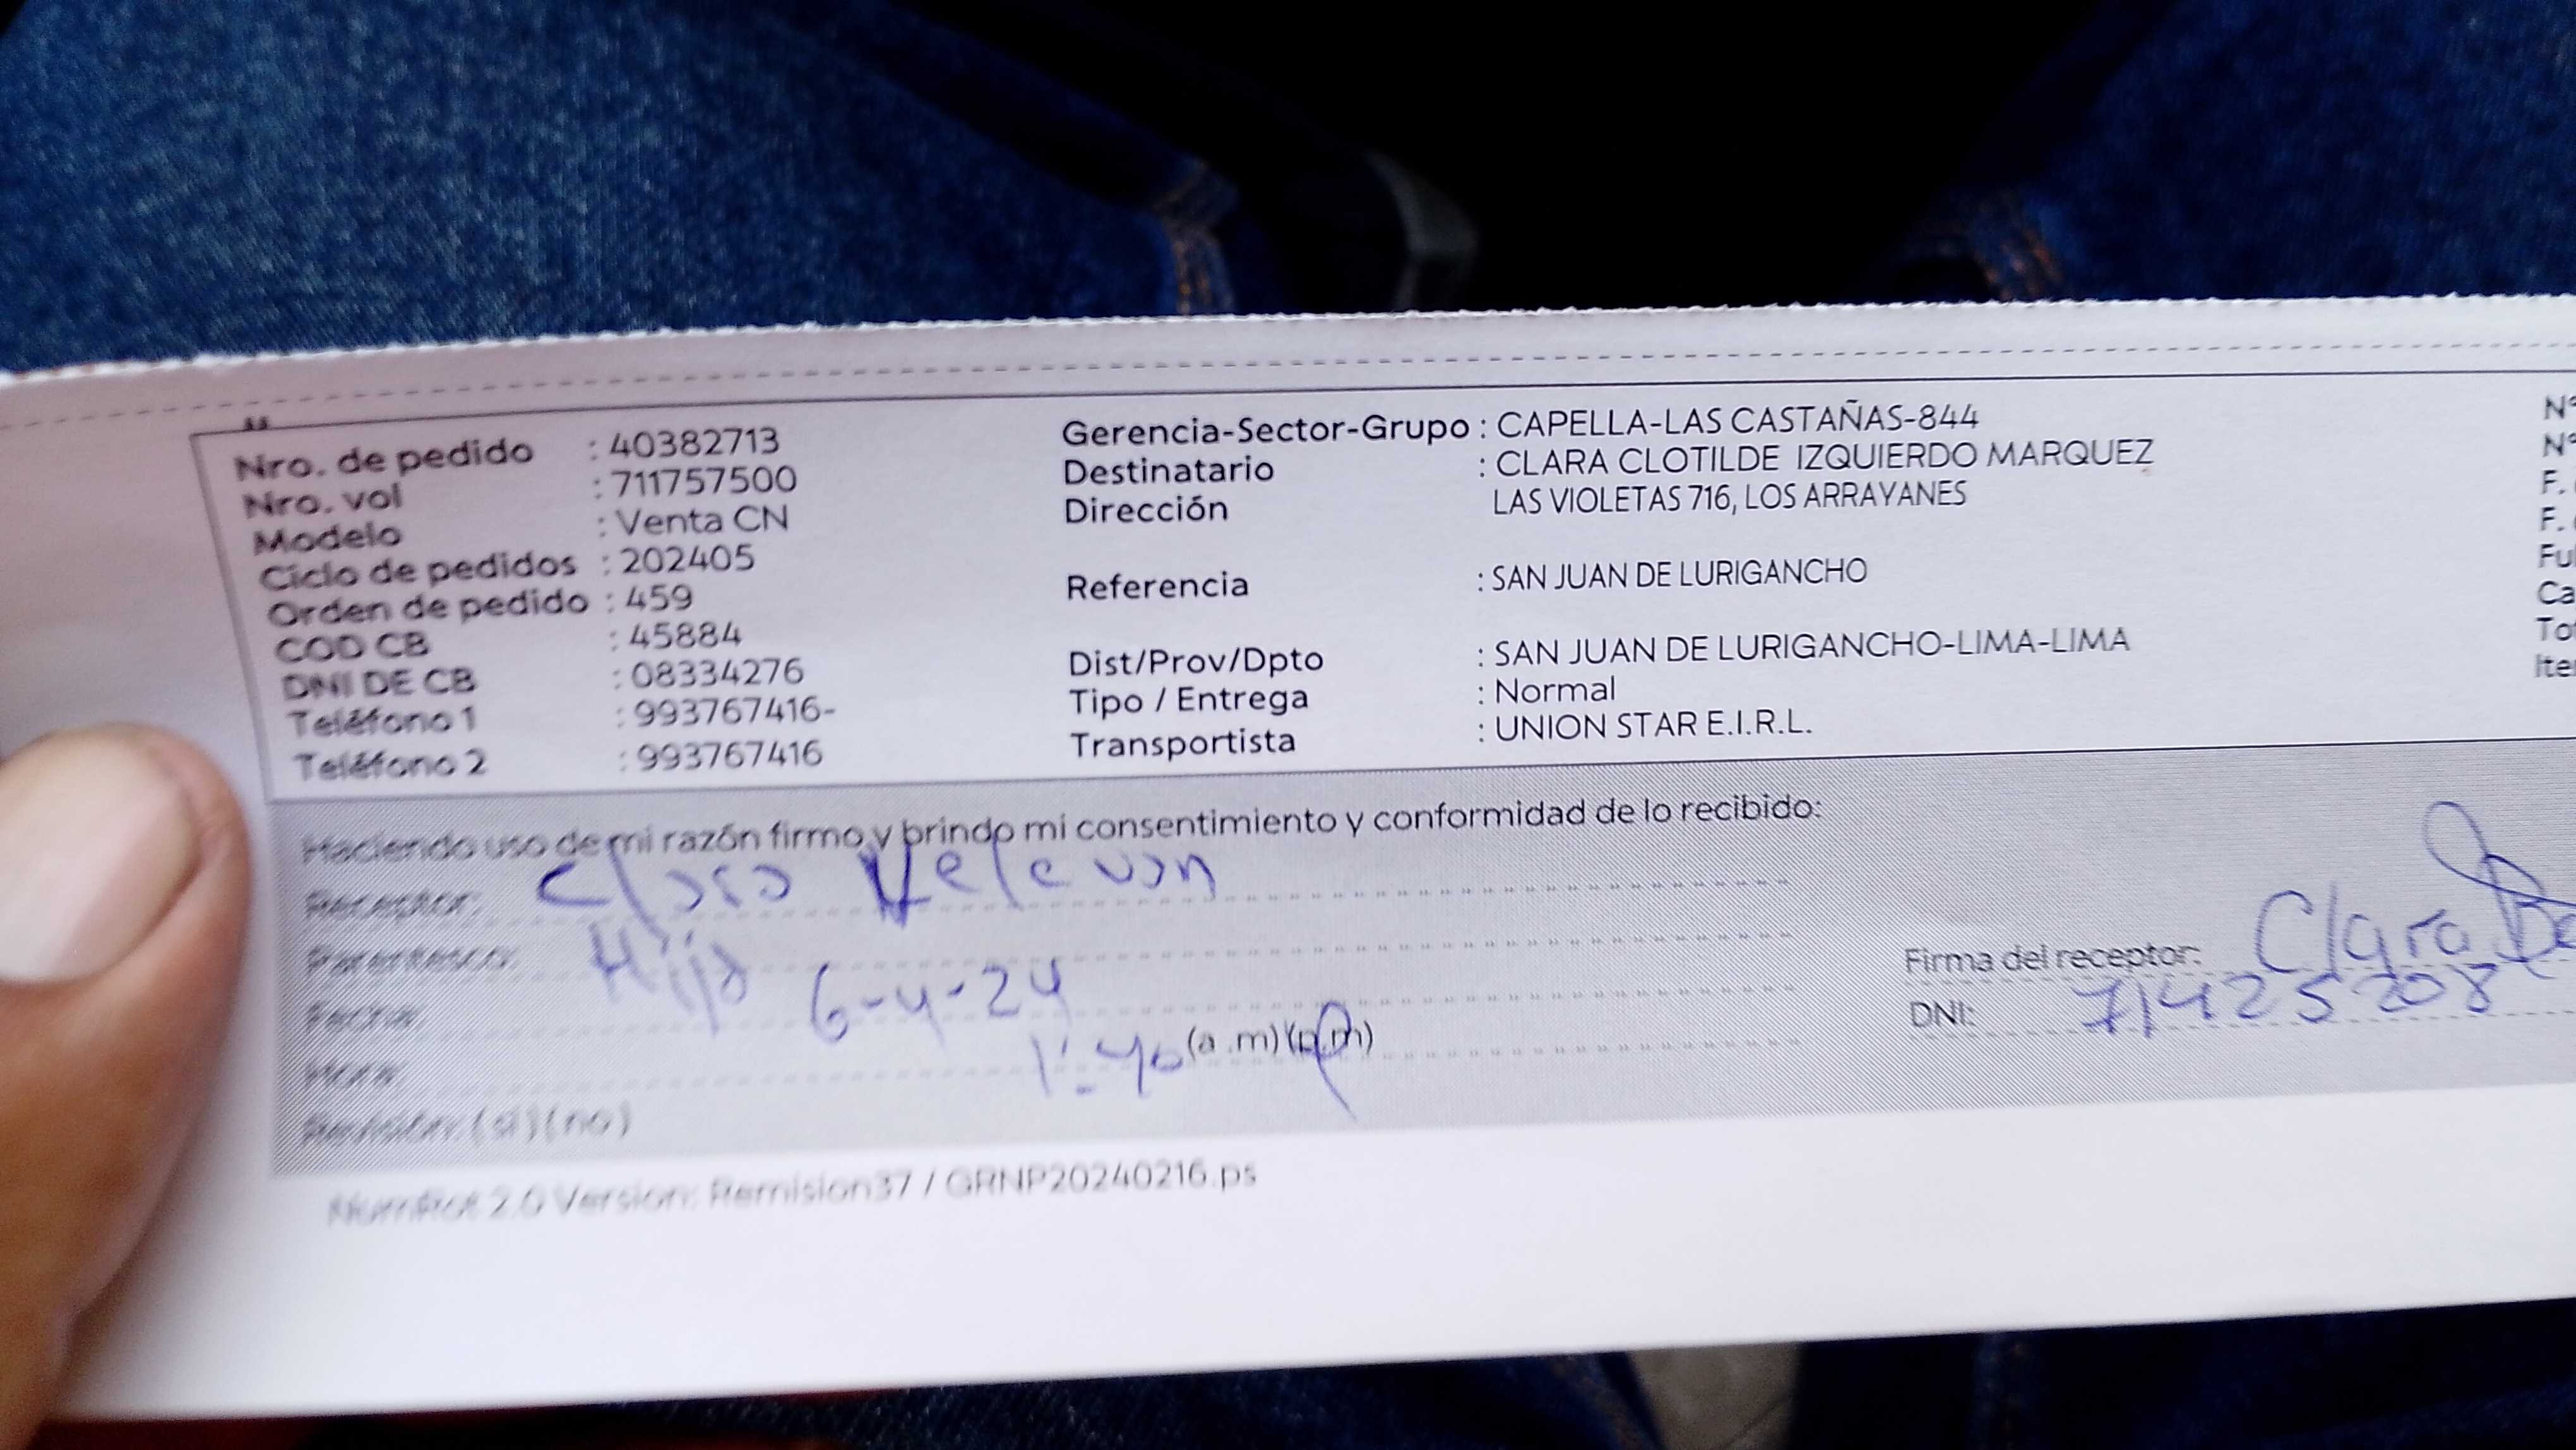 Nro. de pedido : 40382713
Nro. vol : 711757500
Modelo : Venta CN
Ciclo de pedidos : 202405
Orden de pedido : 459
COD CB : 45884
DNI DE CB : 08334276
Teléfono 1 : 993767416-
Teléfono 2 : 993767416
Gerencia-Sector-Grupo : CAPELLA-LAS CASTAÑAS-844
Destinatario : CLARA CLOTILDE IZQUIERDO MARQUEZ
Dirección LAS VIOLETAS 716, LOS ARRAYANES
Referencia : SAN JUAN DE LURIGANCHO
Dist/Prov/Dpto : SAN JUAN DE LURIGANCHO-LIMA-LIMA
Tipo / Entrega : Normal
Transportista : UNION STAR E.I.R.L.
N°
N°
F.
F.
Haciendo uso de mi razón firmo y brindo mi consentimiento y conformidad de lo recibido:
Receptor:
Parentesco: Hija
Fecha: 6-4-24
Hora: 1:40 (a .m) (p.m)
Revisión: (si) (no)
Firma del receptor: Clara
DNI: 71425208
NumRot 2.0 Version: Remision37 / GRNP20240216.ps